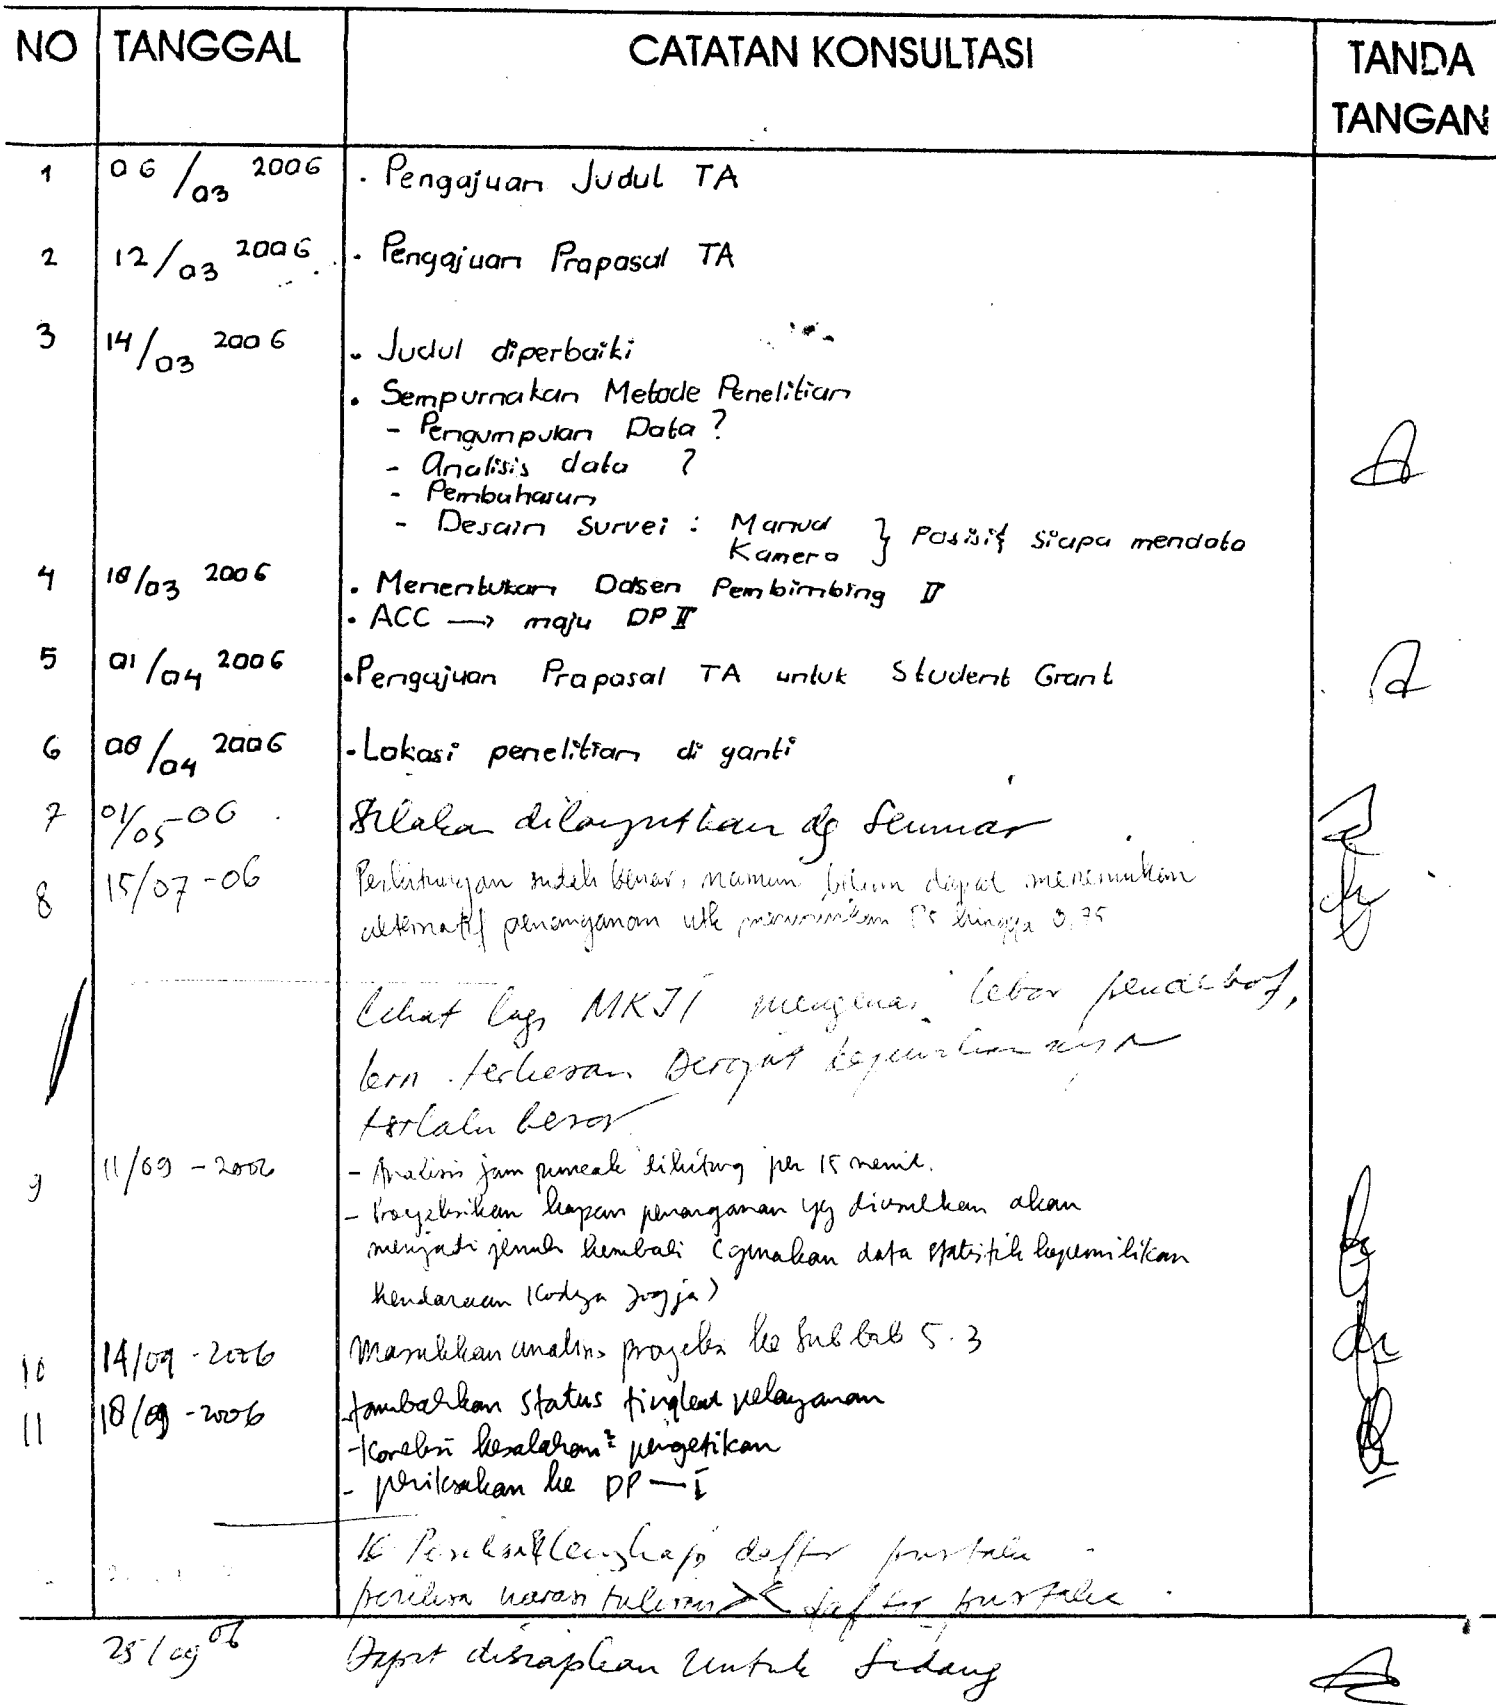 NO TANGGAL CATATAN KONSULTASI TANDA
TANGAN
1 06/03 2006 . Pengajuan Judul TA
2 12/03 2006 . Pengajuan Proposal TA
3 14/03 2006 . Judul diperbaiki
. Sempurnakan Metode Penelitian
- Pengumpulan Data ?
- Analisis data ?
- Pembahasan
- Desain Survei : Manual
Kamera } Posisi siapa mendata
4 18/03 2006 . Menentukan Dosen Pembimbing II
. ACC → maju DP II
5 01/04 2006 . Pengajuan Proposal TA untuk Student Grant
6 08/04 2006 . Lokasi penelitian di ganti
7 01/05-06 Silakan dilanjutkan dg Seminar
8 15/07-06 Perhitungan sudah benar, namun belum dapat menemukan
alternatif penanganan utk menurunkan DS hingga 0,75
lihat lagi MKJI mengenai lebar pendekat,
krn terkesan Derajat kejenuhannya
terlalu besar
9 11/09 - 2006 - Analisis jam puncak dihitung per 15 menit.
- Proyeksikan kapan penanganan yg diusulkan akan
menjadi jenuh kembali (gunakan data statistik kepemilikan
kendaraan Kodya Jogja)
10 14/09 - 2006 Masukkan analisis proyeksi ke Sub bab 5.3
11 18/09 - 2006 - tambahkan status tingkat pelayanan
- Koreksi kesalahan² pengetikan
- periksakan ke DP-I
lengkapi daftar pustaka
periksa narasi tulisan >< daftar pustaka
25/09 06 Dapat disiapkan untuk Sidang